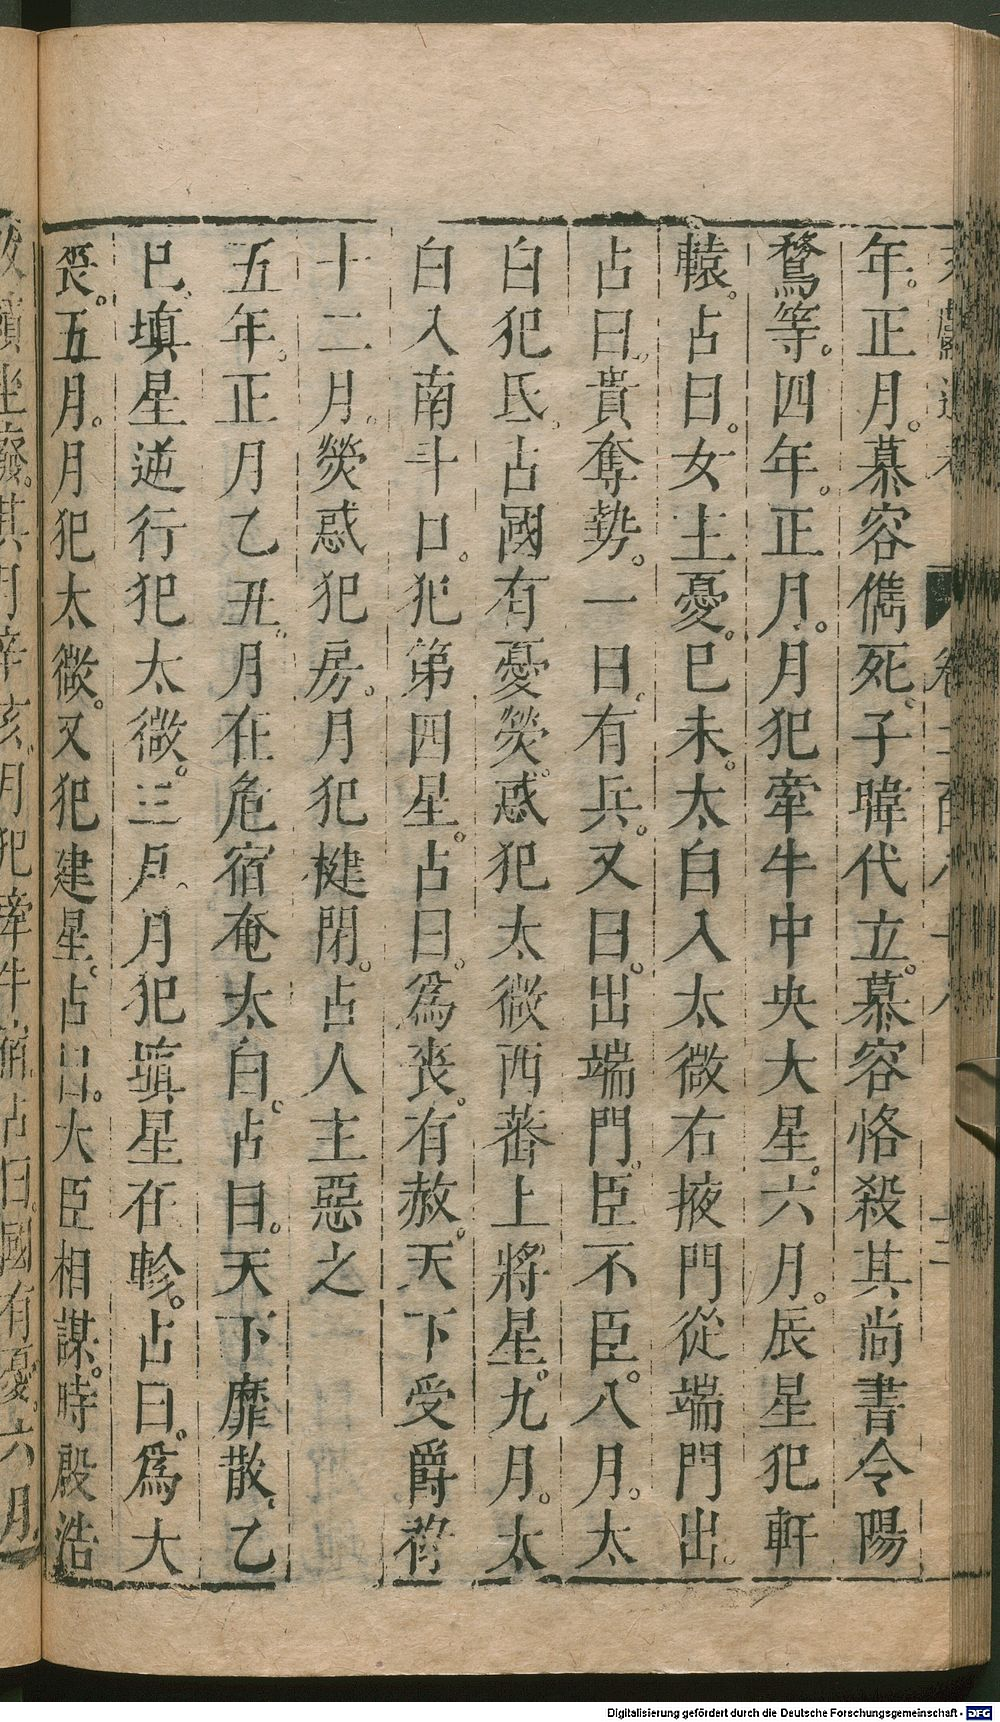 年。正月。慕容儁死。子暐代立。慕容恪殺其尚書令陽
鶩等。四年。正月。月犯牽牛中央大星。六月。辰星犯軒
轅。占曰。女主憂。巳未。太白入太微右掖門從端門出。
占曰。貴奪勢。一曰。有兵。又曰。出端門。臣不臣。八月。太
白犯氐。占國有憂。熒惑犯太微西蕃上將星。九月。太
白入南斗口。犯第四星。占曰。爲喪。有赦。天下受爵祿
十二月。熒惑犯房。月犯楗閉。占人主惡之
五年。正月乙丑。月在危宿奄太白。占曰。天下靡散。乙
巳。填星逆行犯太微。三月。月犯填星在軫。占曰。爲大
喪。五月。月犯太微。又犯建星。占曰。大臣相謀。時殷浩
Digitalisierung gefördert durch die Deutsche Forschungsgemeinschaft - DFG